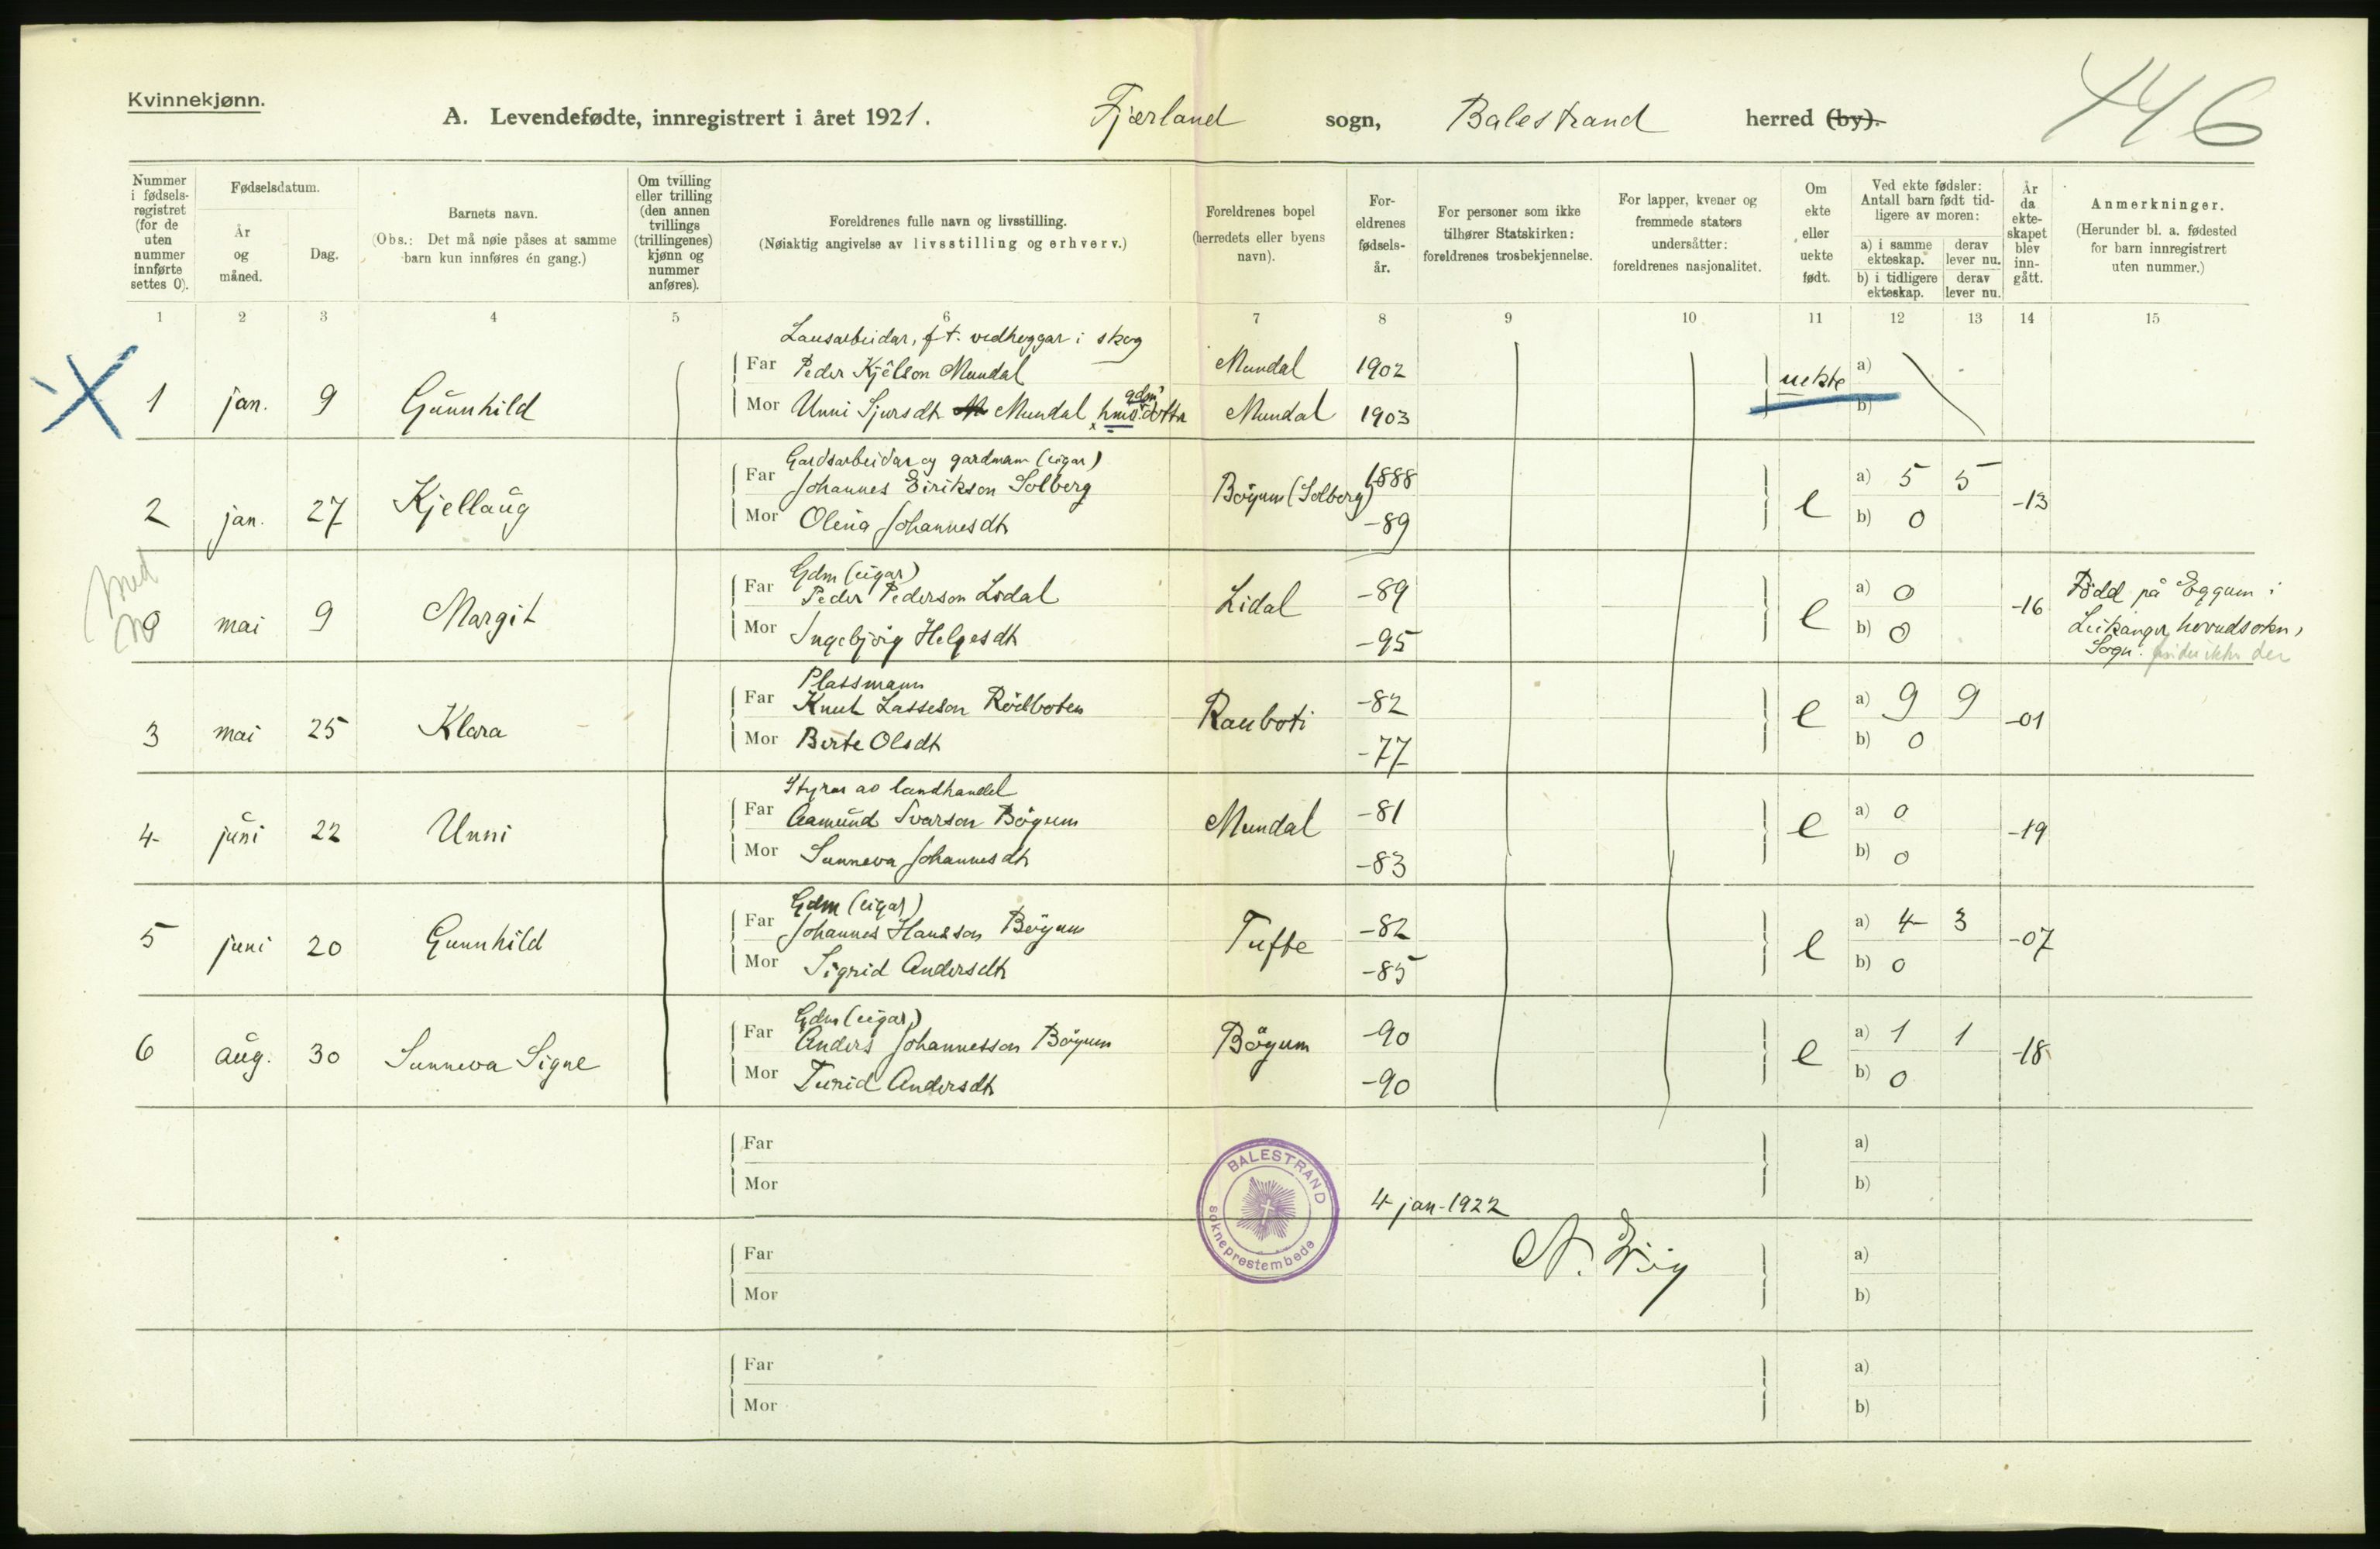 Kvinnekjønn.
A. Levendefødte, innregistrert i året 1921. Fjærland sogn, Balestrand herred (by).
446
Nummer i fødsels-registret (for de uten nummer innførte settes 0).
Fødselsdatum.
År og måned.
Dag.
Barnets navn.
(Obs.: Det må nøie påses at samme barn kun innføres én gang.)
Om tvilling eller trilling (den annen tvillings (trillingenes) kjønn og nummer anføres).
Foreldrenes fulle navn og livsstilling.
(Nøiaktig angivelse av livsstilling og erhverv.)
Foreldrenes bopel (herredets eller byens navn).
For-eldrenes fødsels-år.
For personer som ikke tilhører Statskirken: foreldrenes trosbekjennelse.
For lapper, kvener og fremmede staters undersåtter: foreldrenes nasjonalitet.
Om ekte eller uekte født.
Ved ekte fødsler: Antall barn født tid-ligere av moren:
a) i samme ekteskap. derav lever nu.
b) i tidligere ekteskap. derav lever nu.
År da ekte-skapet blev inn-gått.
Anmerkninger.
(Herunder bl. a. fødested for barn innregistrert uten nummer.)
1 2 3 4 5 6 7 8 9 10 11 12 13 14 15
Lausarbeidar, f. t. vedhoggar i skog
Far Peder Kjêlson Mundal Mundal 1902 uekte a)
1 jan. 9 Gunnhild
Mor Unni Sjursdtr Mundal, gdm hms. dotter Mundal 1903 b)
Gardsarbeidar og gardmann (eigar)
Far Johannes Eirikson Solberg Bøyum (Solberg) 1888 a) 5 5
2 jan. 27 Kjellaug e -13
Mor Olena Johannesdtr -89 b) 0
med
Gdm (eigar)
Far Peder Pederson Lidal Lidal -89 a) 0 -16 Fødd på Eggum i
0 mai 9 Margit e
Mor Ingebjørg Helgesdtr -95 b) 0 Leikanger hovudsokn,
Sogn. der
Plassmann
Far Knut Lasseson Rødboten Rauboti -82 a) 9 9
3 mai 25 Klara e -01
Mor Berte Olsdtr -77 b) 0
Styrar av landhandel
Far Aamund Ivarson Bøyum Mundal -81 a) 0
4 juni 22 Unni e -19
Mor Sunneva Johannesdtr -83 b) 0
Gdm (eigar)
Far Johannes Hansson Bøyum Tufte -82 a) 4 3
5 juni 20 Gunnhild e -07
Mor Sigrid Andersdtr -85 b) 0
Gdm (eigar)
Far Anders Johannesson Bøyum Bøyum -90 a) 1 1
6 aug. 30 Sunneva Signe e -18
Mor Turid Andersdtr -90 b) 0
Far a)
Mor b)
BALESTRAND
sokneprestembede
4 jan. 1922
Far a)
Mor b)
Far a)
Mor b)